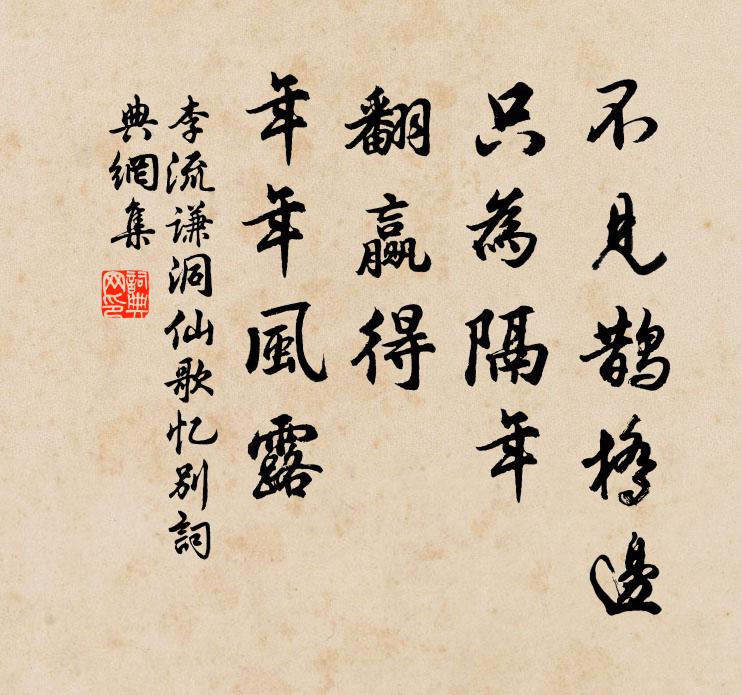 不見鵲橋邊
只為隔年
翻贏得
年年風露
李流谦洞仙歌忆别詞
典網集
詞典網印